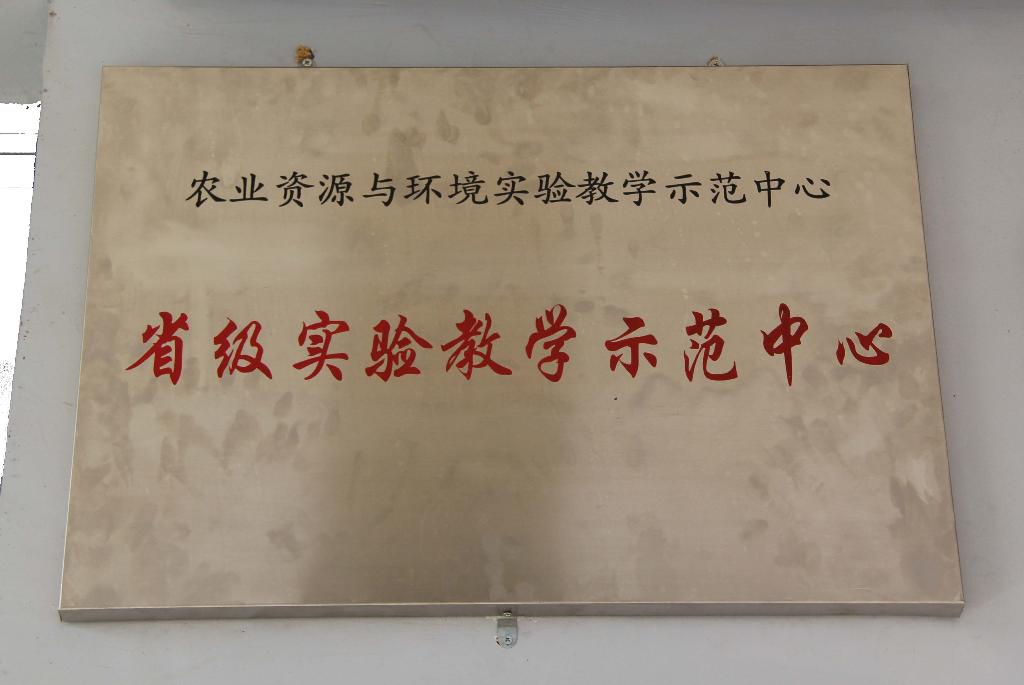 农业资源与环境实验教学示范中心
省级实验教学示范中心